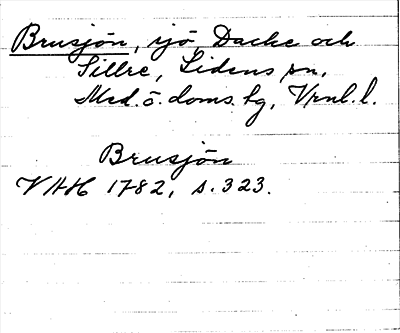 Brusjön, sjö Dacke och
Sillre, Lidens sn.
Med. ö. doms. hg, Vrnl. l.
Brusjön
VHH 1782, s. 323.